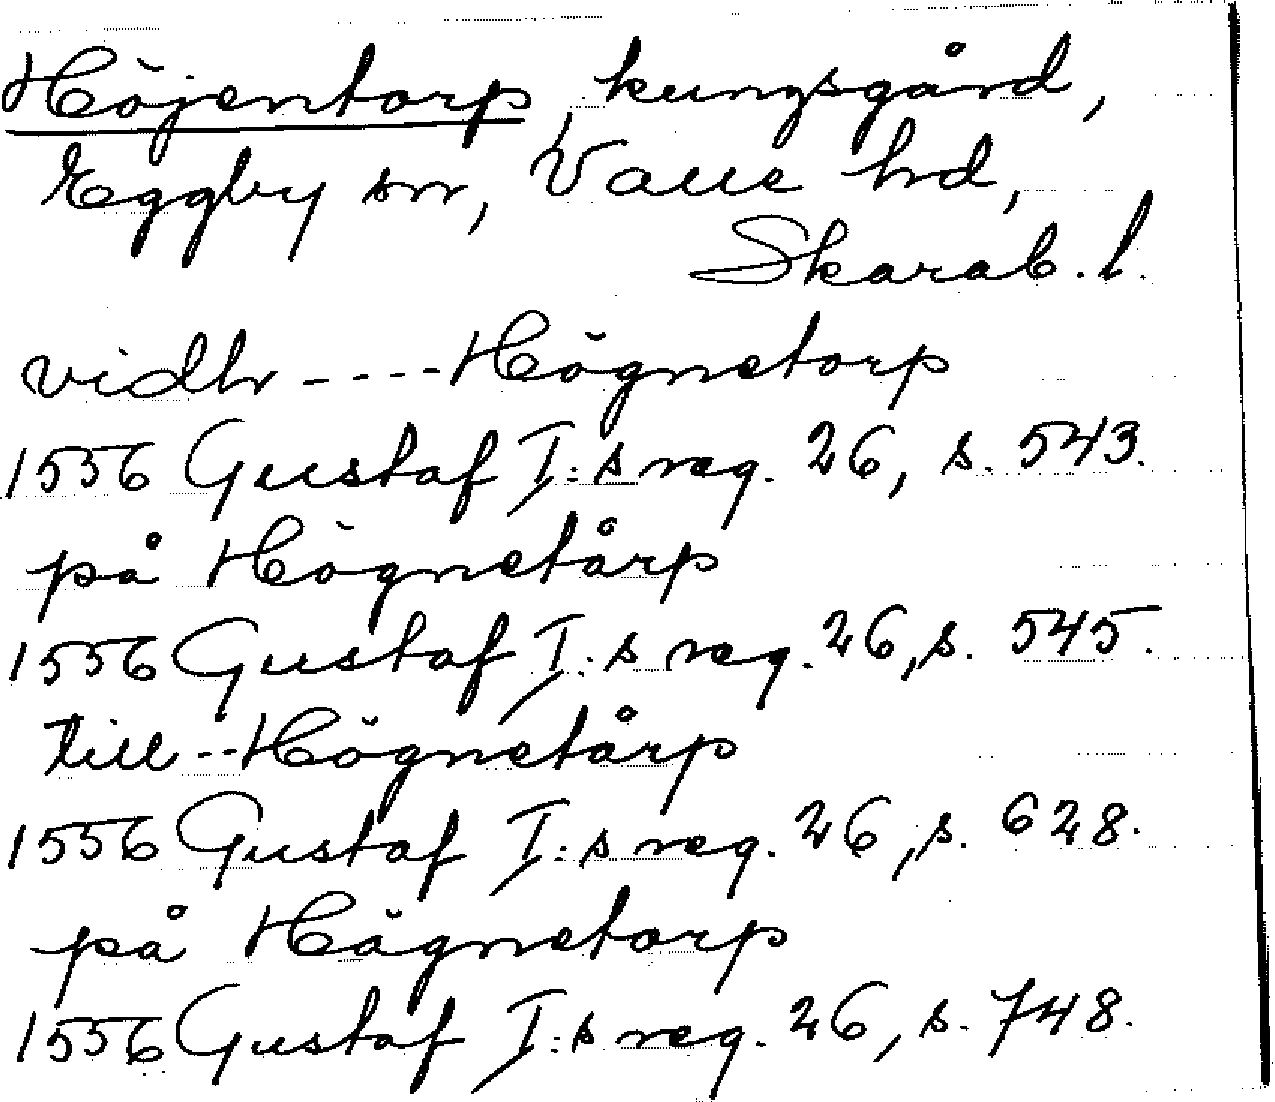 Höjentorp, kungsgård,
Eggby sn, Valle hd,
Skarab. l.
vidh ---- Högnetorp
1556 Gustaf I:s reg. 26, s. 543.
på Högnetårp
1556 Gustaf I:s reg. 26, s. 545.
till -- Högnetårp
1556 Gustaf I:s reg. 26, s. 628.
på Högnetorp
1556 Gustaf I:s reg. 26, s. 748.